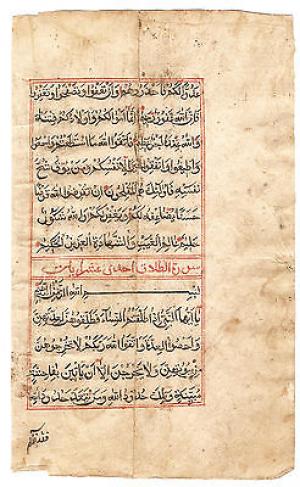 عدوا لكم فاحذروهم وان تعفوا وتصفحوا وتغفروا
فان الله غفور رحيم انما اموالكم واولادكم فتنة
والله عنده اجر عظيم فاتقوا الله ما استطعتم واسمعوا
واطيعوا وانفقوا خيرا لانفسكم ومن يوق شح
نفسه فاولئك هم المفلحون ان تقرضوا الله قرضا
حسنا يضاعفه لكم ويغفر لكم والله شكور
حليم عالم الغيب والشهادة العزيز الحكيم
سورة الطلاق احدى عشر ايات
بسم الله الرحمن الرحيم
يا ايها النبي اذا طلقتم النساء فطلقوهن لعدتهن
واحصوا العدة واتقوا الله ربكم لا تخرجوهن
من بيوتهن ولا يخرجن الا ان ياتين بفاحشة
مبينة وتلك حدود الله ومن يتعد حدود الله
فقد ظلم